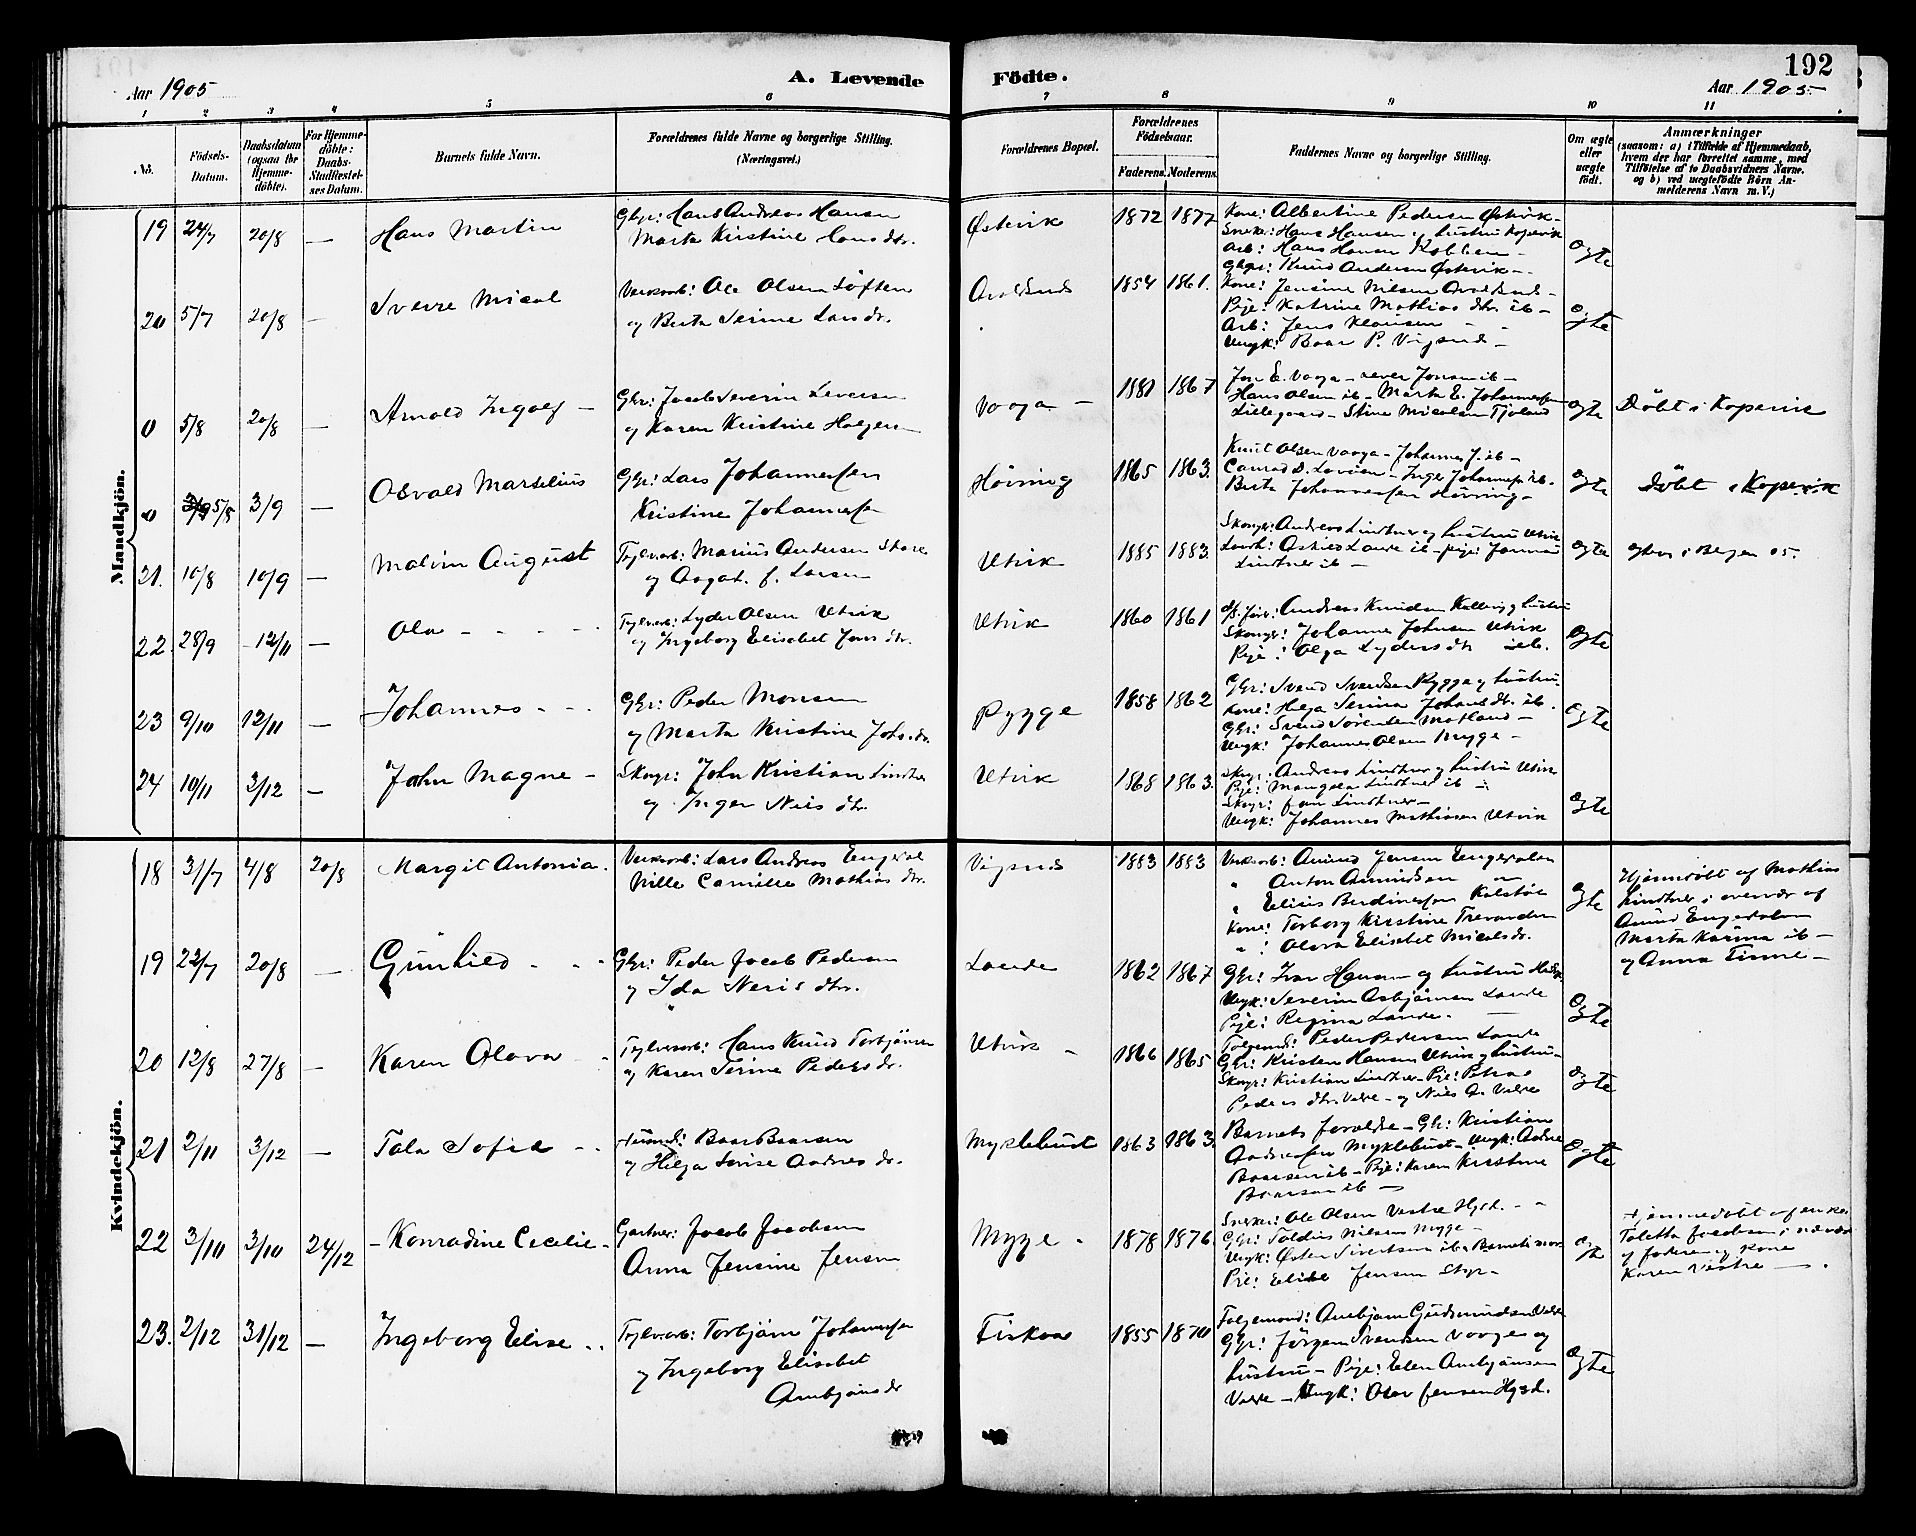 192
Aar 1905
A. Levende Födte.
Aar 1905
1 2 3 4 5 6 7 8 9 10 11
No.
Födsels-Datum.
Daabsdatum (ogsaa for Hjemmedöbte).
For Hjemmedöbte: Daabs-Stadfæstelses Datum.
Barnets fulde Navn.
Forældrenes fulde Navne og borgerlige Stilling. (Næringsvei.)
Forældrenes Bopæl.
Forældrenes Födselsaar.
Faderens. Moderens.
Faddernes Navne og borgerlige Stilling.
Om ægte eller uægte födt.
Anmærkninger
(saasom: a) i Tilfælde af Hjemmedaab, hvem der har forrettet samme, med Tilföielse af to Daabsvidners Navne, og b) ved uægtefödte Börn Anmelderens Navn m. V.)
Mandkjön.
19 24/7 20/8 — Hans Martin
Gbr: Hans Andreas Hansen
Marta Kristine Hansdtr.
Østvik 1872 1877
Kone: Albertine Pedersen Østvik -
Snekr: Hans Hansen og hustru Kopervik
Arb: Hans Hansen
Gbr: Knud Andersen Østvik -
Ægte
20 5/7 20/8 — Sverre Mical
Verksarb: Ole Olsen Løften
og Berta Serine Larsdr.
Avaldsnes 1854 1861.
Kone: Jensine Nilsen Avaldsnes -
Pige: Katrine Mathias dtr. ib -
Arb: Jens Klausen - -
Ungk: Boar P. Vigsnes -
Ægte
0 5/8 20/8 — Arnold Ingolf -
Gbr: Jacob Severin Iversen
og Karen Kristine Holgers -
Vaaga - 1881 1867
Jon E. Vaaga - Jonsen ib -
Hans Olsen ib - Marta E. Johannessen
Lillegaard - Stine Micalsen Tjoland
Ægte Döbt i Kopervik
0 5/8 3/9 — Osvald Marselius
Gbr: Lars Johannessen
Kristine Johannessen
Høvring 1865 1863.
Knut Olsen Vaaga - Johannes J. ib -
Conrad S. - Inger Johannesen ib.
Berta Johannessen Høvring -
Ægte Döbt i Kopervik
21. 10/8 10/9 — Malvin August
Teglv.arb: Marius Andersen Skare
og Aagat. J. Larsen
Utvik 1885 1883.
Skomgr: Andreas Lindtner og hustru Utvik
Ægte i Bergen 05.
22. 28/9 12/11 — Ola - - -
Teglv.arb: Lyder Olsen Utvik
og Ingeborg Elisabet Jons dtr.
Utvik 1860 1861
Andreas Knudsen
Skomgr: Johannes Johnsen Utvik
Pige: Olga Lydersdtr ib.
Ægte
23 9/10 12/11 — Johannes - -
Gbr: Peder Monsen
og Marta Kristine Johs.dr.
Rygge 1858 1862
Gbr: Svend Svendsen Rygge og hustru
Kone: Helga Serina Johans dtr. ib.
Gbr: Svend Sørensen Matland -
Ungk: Johannes Olsen Myge -
Ægte
24 10/11 3/12 — John Magne -
Skomgr: John Kristian Lindtner
og Inger Nils dtr.
Utvik 1868 1863.
Skmgr: Andreas Lindtner og hustru Utvik
Pige: Lindtner ib -
Skmgr: Lindtner -
Ungk: Johannes Mathiasen Utvik
Ægte
Kvindekjön.
18 31/7 4/8 20/8 Margit Antonia.
Verksarb: Lars Andreas
Nille Camille Mathias dtr.
Vigsnes 1883 1883
Verksarb: Amund Jensen Engedalen
" Anton Amundsen "
" Elisius Berdinessen Kolstø
Kone: Torborg Kirstine
" : Olava Elisabet Micalsdr.
Ægte
Hjemmedöbt af Mathias
Lindtner i overvær af
Amund Engedalen
Marta Karina ib -
og Anna Finne -
19 22/7 20/8 — Gunhild - -
Gbr: Peder Jacob Pedersen
og Ida Neris dtr.
Lande 1862 1867
Gbr: Ivar Hansen og hustru
Ungk: Severin Asbjørnsen Lande
Pige: Regina Lande. -
Ægte
20 12/8 27/8 — Karen Olava -
Teglv.arb: Hans Knud Torbjørnsen
og Karen Serine Pedersdr.
Utvik - 1866 1865
Peder Pedersen Lande
Gbr: Kristen Hansen Utvik og hustru -
Skomgr: Kristian Lindtner - Pige: Petrea
Peders dtr. Valre - og Nils A. Valre
Ægte
21 2/11 3/12 — Tala Sofie - -
Boar Boarsen
og Helga Lovise Andreas dr.
Myklebust 1863 1863.
Barnets forældre - Gbr: Kristian
Andreassen Myklebust - Ungk: Andreas
Boarsen ib - Pige: Karen Kirstine
Boarsen ib -
Ægte
22 3/10 3/10 24/12 - Konradine Cecilie -
Gartner: Jacob Jacobsen
Anna Jensine Jensen
Myge - 1878 1876.
Snekker: Ole Olsen Vestre Hgsd. - -
Gbr: Toldius Nilsen Myge -
Ungk: Østen Sivertsen ib. Barnets mor
Pige: Elise Jensen -
Ægte
Hjemmedöbt af enke
Toletta Jacobsen i nærvær
af faderen og kone
Karen Vestre - .
23. 2/12 31/12 — Ingeborg Elise - -
Teglv.arb: Torbjørn Johannessen
og Ingeborg Elisabet
Arnbjørnsdr
Fiskaa 1855 1870
Følgemand: Arnbjørn Gudmundsen Valre
Gbr: Jørgen Svendsen Vaage og
hustru - Pige: Elen Arnbjørnsen
Valre - Ungk: Olav Jensen Hgsd.
Ægte